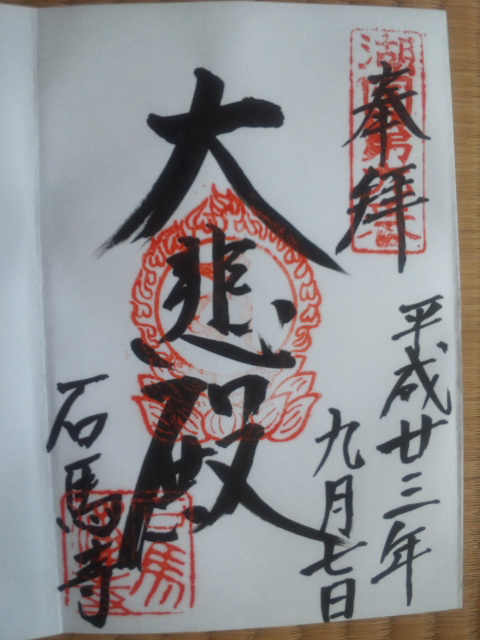 奉拜
平成廿三年
九月七日
大悲殿
石馬寺